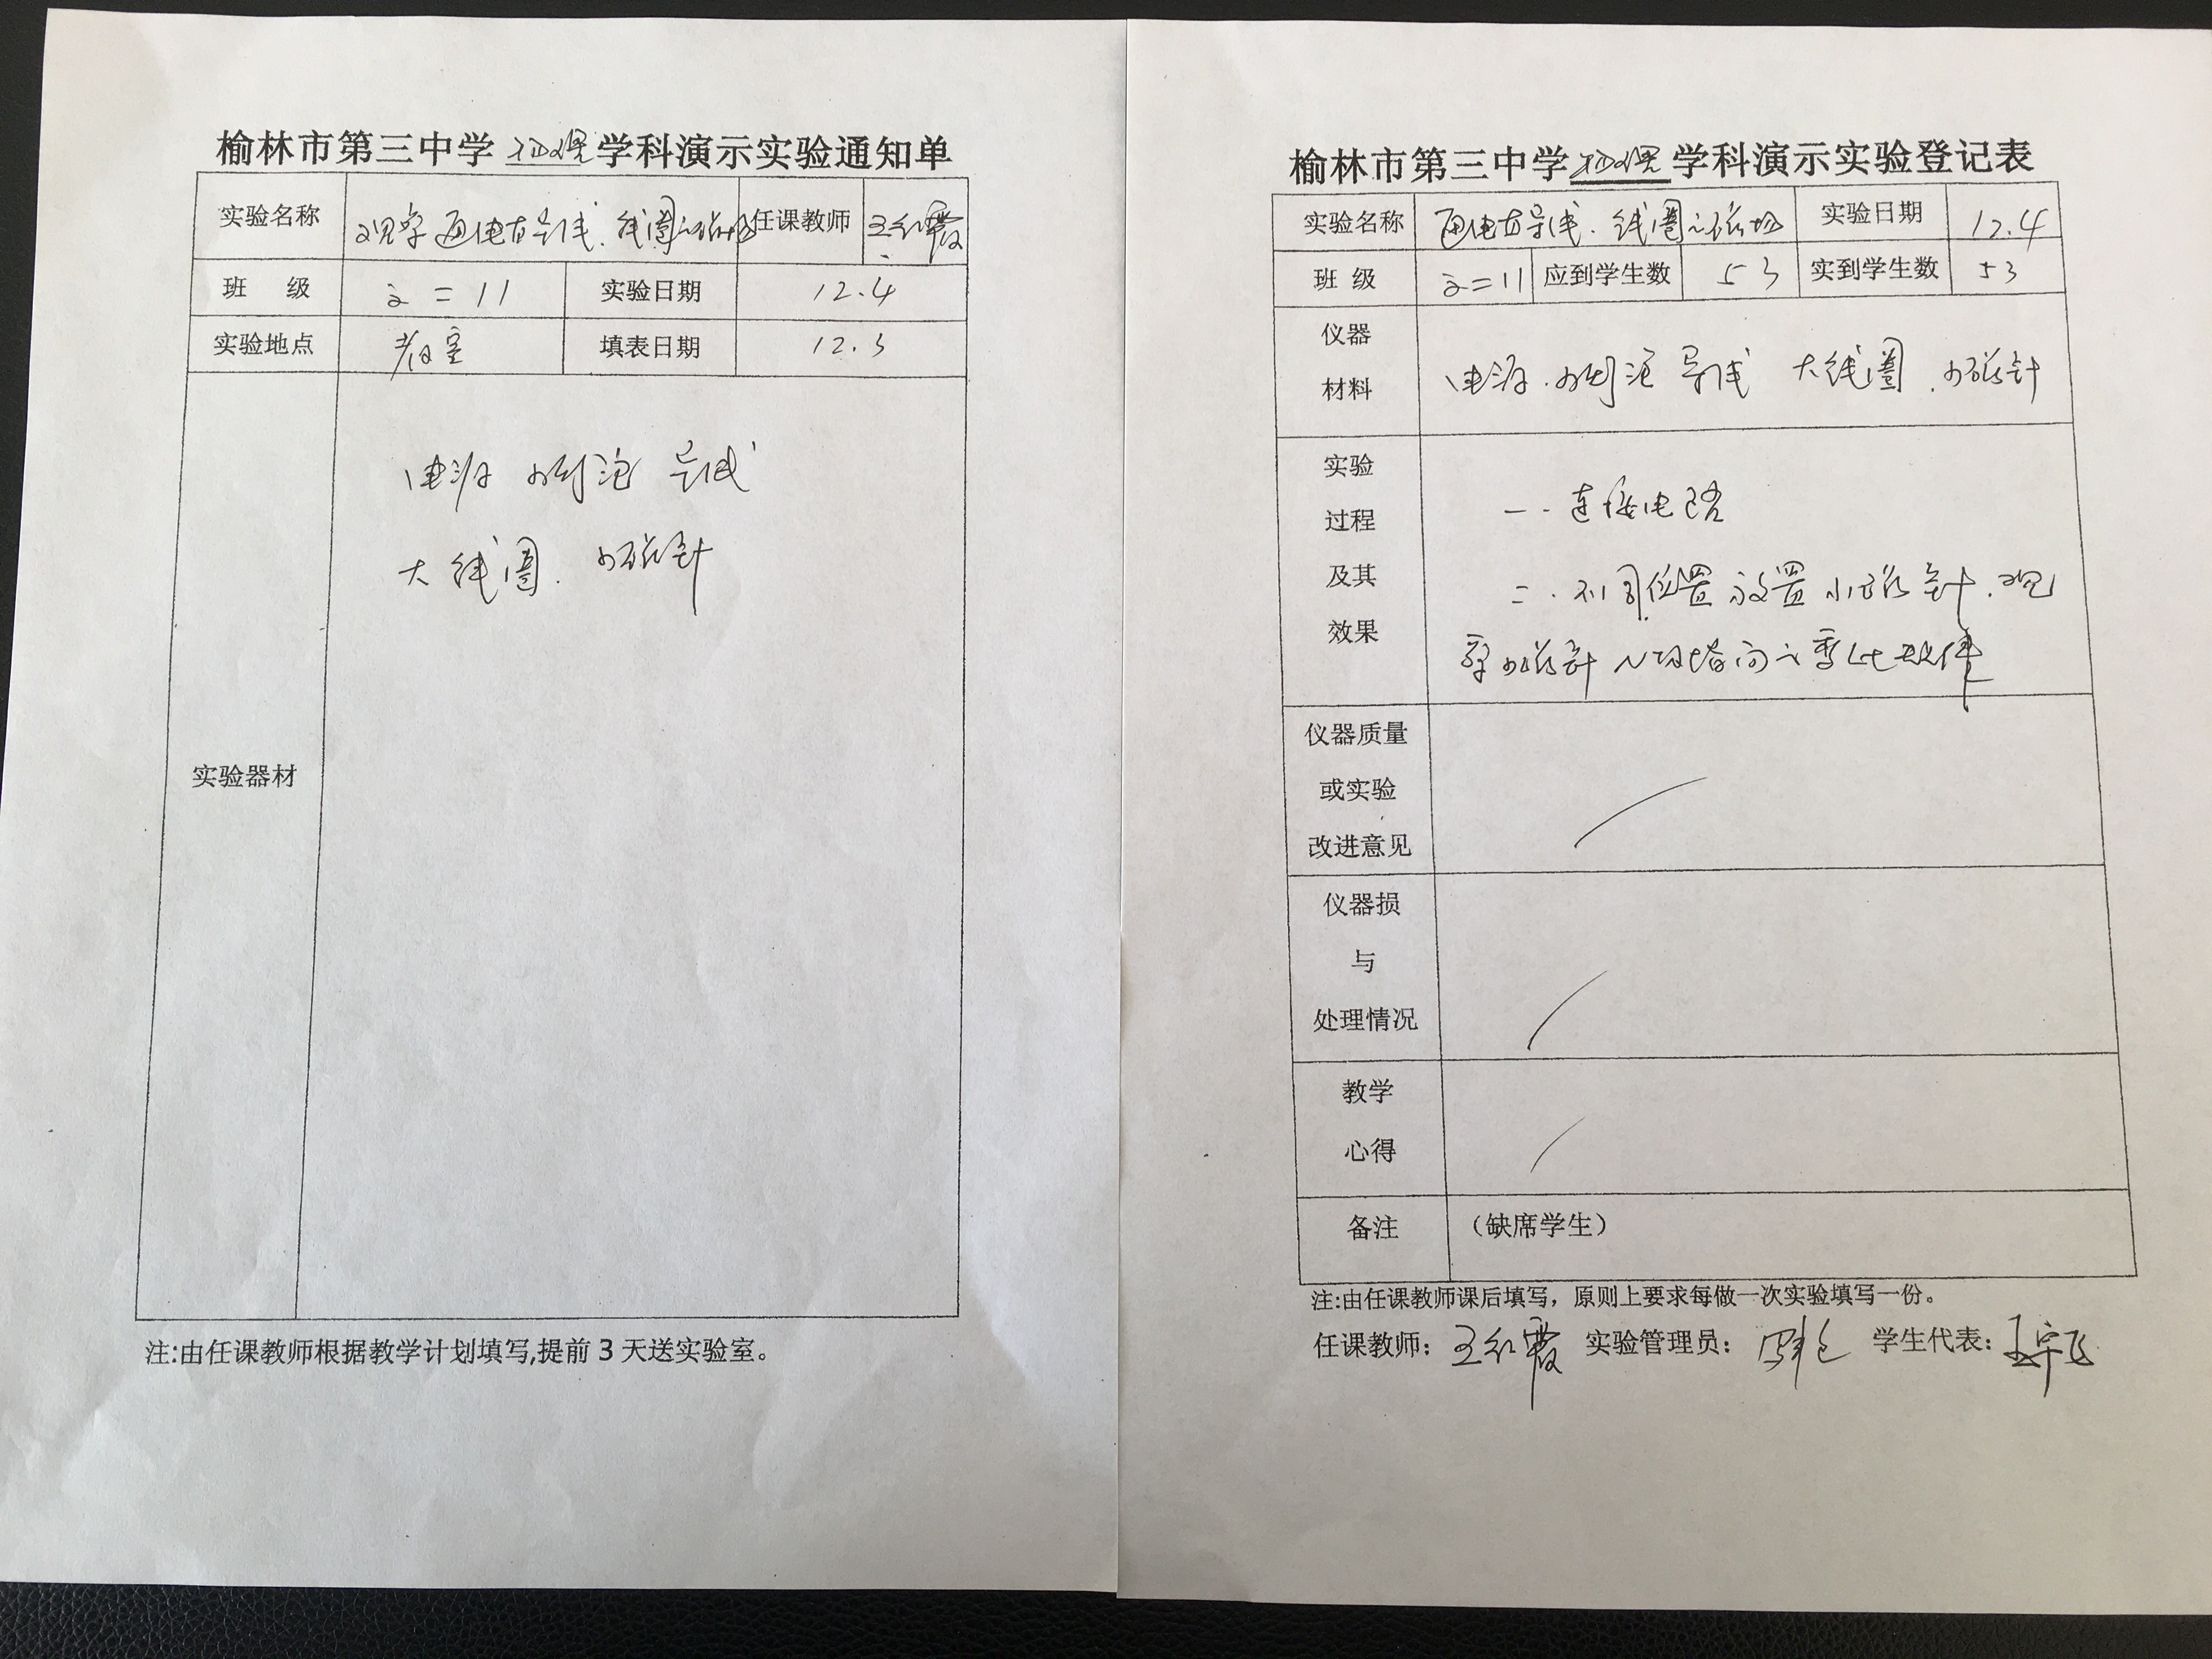 榆林市第三中学 物理 学科演示实验通知单
实验名称 观察通电直导线、线圈的磁场 任课教师 王红霞
班 级 高二11 实验日期 12.4
实验地点 教室 填表日期 12.3
电源 小灯泡 导线
大线圈. 小磁针
实验器材
注:由任课教师根据教学计划填写,提前3天送实验室。
榆林市第三中学 物理 学科演示实验登记表
实验名称 通电直导线、线圈的磁场 实验日期 12.4
班 级 高二11 应到学生数 53 实到学生数 53
仪器
材料
电源.小灯泡 导线 大线圈.小磁针
实验
过程
及其
效果
一.连接电路
二.不同位置放置小磁针.观
察小磁针N极指向的变化规律
仪器质量
或实验
改进意见
仪器损
与
处理情况
教学
心得
备注 （缺席学生）
注:由任课教师课后填写，原则上要求每做一次实验填写一份。
任课教师: 王红霞 实验管理员: 学生代表: 王宇飞